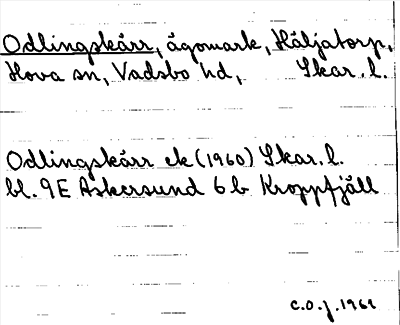 Odlingskärr, ägomark, Häljatorp,
Hova sn, Vadsbo hd, Skar. l.
Odlingskärr ek (1960) Skar. l.
bl. 9E Askersund 6b Kroppfjäll
C.O.J. 1961